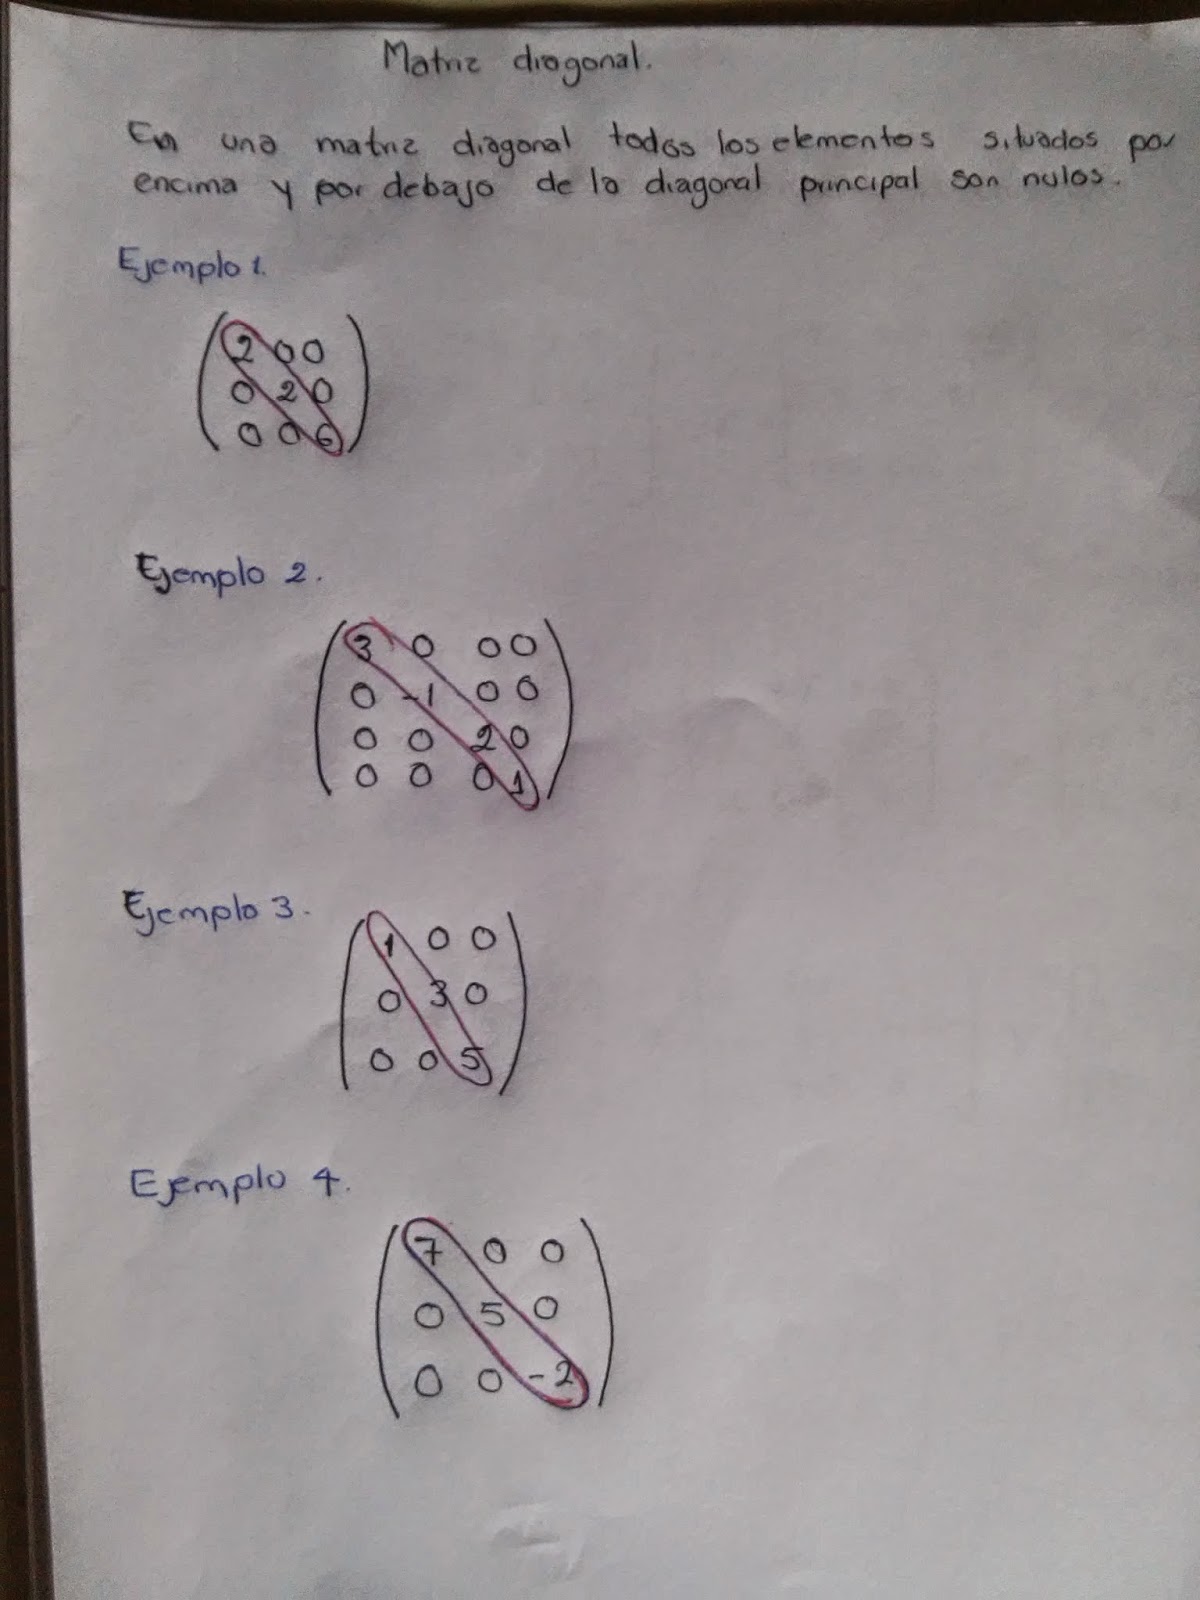 Matriz diagonal.
En una matriz diagonal todos los elementos situados por
encima y por debajo de la diagonal principal son nulos.
Ejemplo 1.
2 0 0
0 2 0
0 0 6
Ejemplo 2.
3 0 0 0
0 -1 0 0
0 0 2 0
0 0 0 1
Ejemplo 3.
1 0 0
0 3 0
0 0 5
Ejemplo 4.
7 0 0
0 5 0
0 0 -2